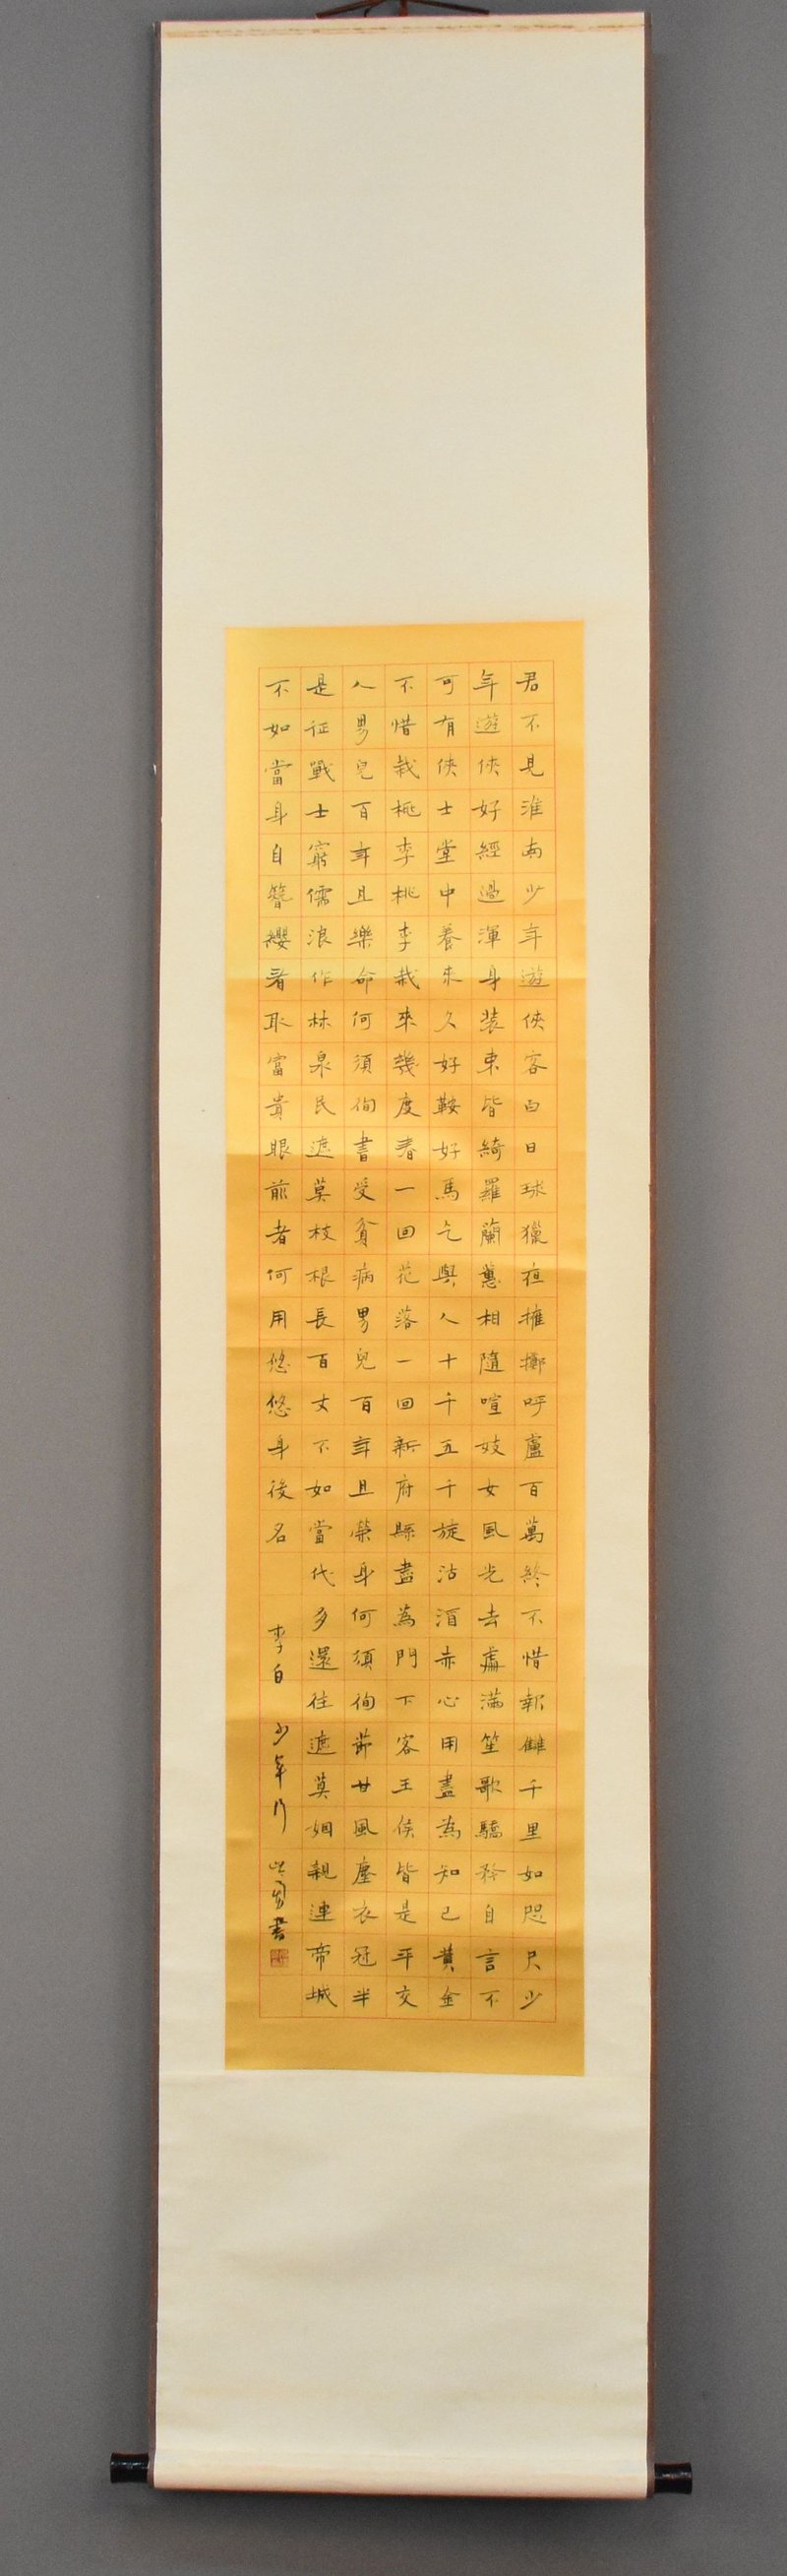 君不見淮南少年遊俠客白日球獵夜擁擲呼盧百萬終不惜報讎千里如咫尺少
年遊俠好經過渾身裝束皆綺羅蘭蕙相隨喧妓女風光去處滿笙歌驕矜自言不
可有俠士堂中養來久好鞍好馬乞與人十千五千旋沽酒赤心用盡為知己黃金
不惜栽桃李桃李栽來幾度春一回花落一回新府縣盡為門下客王侯皆是平交
人男兒百年且樂命何須徇書受貧病男兒百年且榮身何須徇節甘風塵衣冠半
是征戰士窮儒浪作林泉民遮莫枝根長百丈不如當代多還往遮莫姻親連帝城
不如當身自簪纓看取富貴眼前者何用悠悠身後名 李白 少年行 書